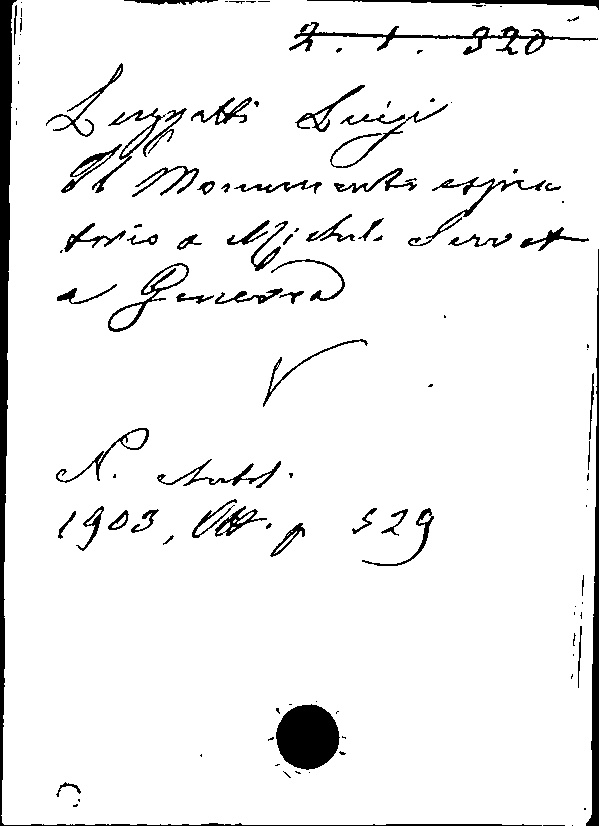 2. 1. 320
Luzzatti Luigi
Il Monumento espia
torio a Michele Servet
a Ginevra
V
N. Antol.
1903, Ott. p 529